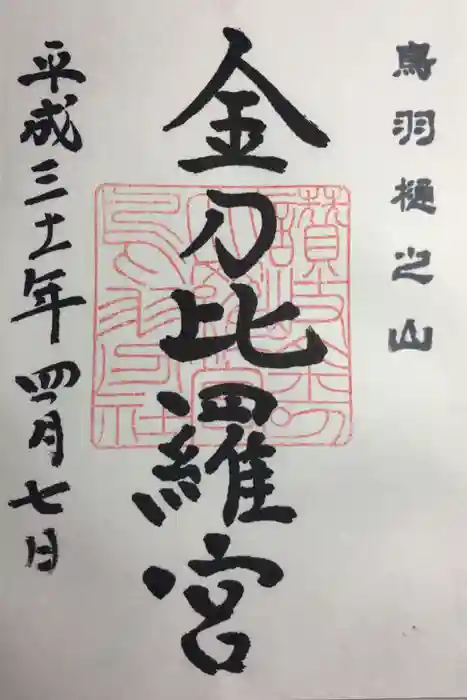 鳥羽樋之山
金刀比羅宮
平成三十一年四月七日